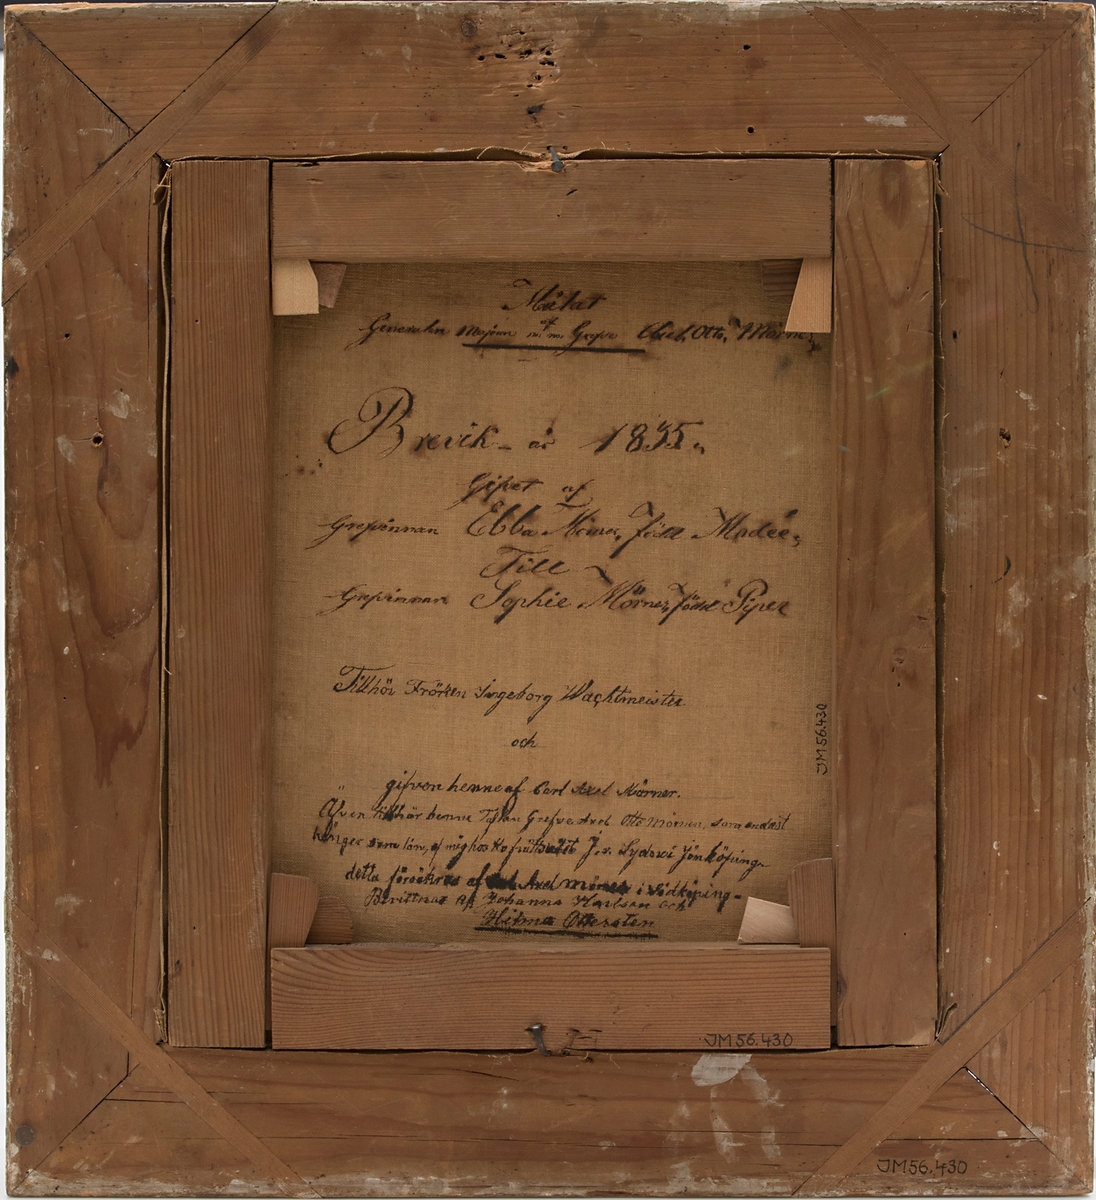 Målat
af
Generalen Majoren m.m. Grefve Axel, Otto, Mörner
Brevik - år 1835.
Gifvet af
Grefvinnan Ebba Mörner, född Modée,
Till
Grefvinnan Sophie Mörner, född Piper
Tillhör Fröken Ingeborg Wachtmeister
och
gifven henne af Carl Axel Mörner.
Äfven tillhör henne Taflan Grefve Axel Otto Mörner, som endast
hänger som lån, af mig hos J. v. Sydow i Jönköping
detta försäkras af Axel Mörner i Nödköping -
Bevittnas af, Johanna Karlson och
Hilma Ottersten
JM 56.430
JM 56.430
JM 56.430